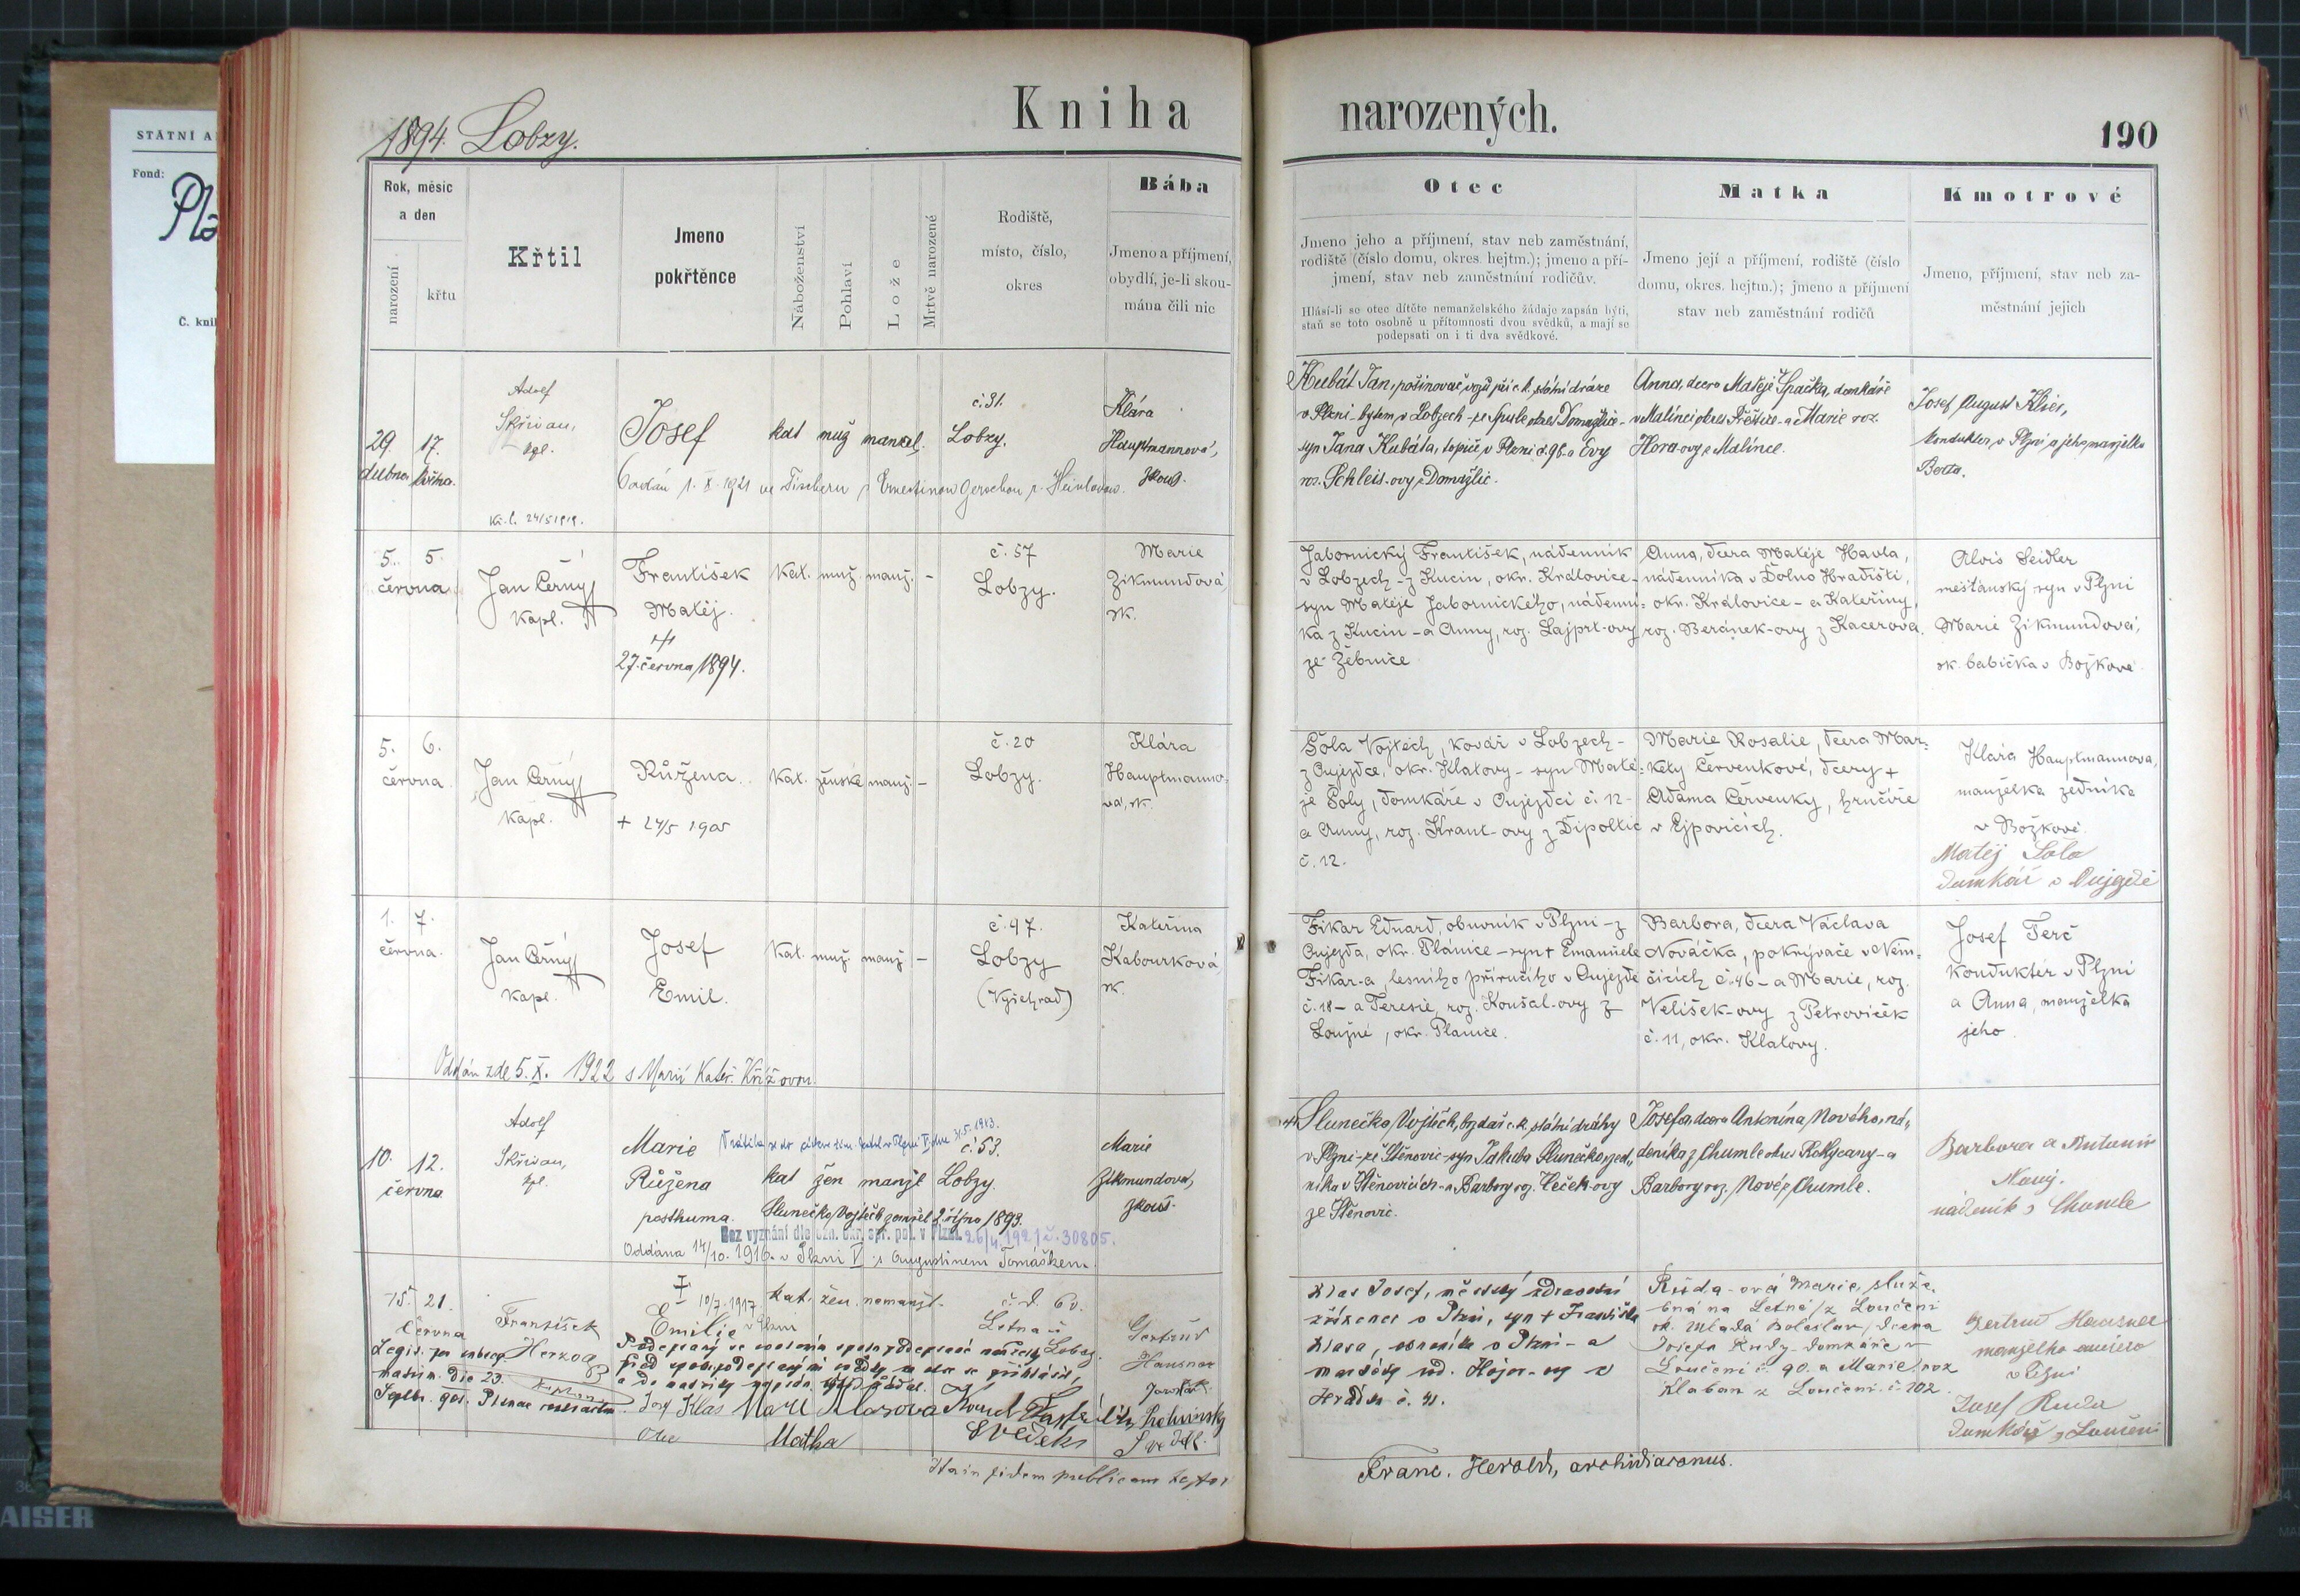 STÁTNÍ A
Fond:
Pl
Č. knih
AISER
Kniha narozených.
1894. Lobzy.
190
Rok, měsíc a den
narození
křtu
Křtil
Jmeno pokřtěnce
Náboženství
Pohlaví
Lože
Mrtvě narozené
Rodiště,
místo, číslo,
okres
Bába
Jmeno a příjmení,
obydlí, je-li skou-
mána čili nic
Otec
Jmeno jeho a příjmení, stav neb zaměstnání,
rodiště (číslo domu, okres. hejtm.); jmeno a pří-
jmení, stav neb zaměstnání rodičův.
Hlásí-li se otec dítěte nemanželského žádaje zapsán býti,
staň se toto osobně u přítomnosti dvou svědků, a mají se
podepsati on i ti dva svědkové.
Matka
Jmeno její a příjmení, rodiště (číslo
domu, okres. hejtm.); jmeno a příjmení
stav neb zaměstnání rodičů
Kmotrové
Jmeno, příjmení, stav neb za-
městnání jejich
29. dubna
17. května
Adolf
Skřivan,
kpl.
Josef
kat muž manžel.
č. 31.
Lobzy.
Klára
Hauptmannová,
zkouš.
Oddán 1. X. 1921 ve Fischern s Ernestinou
Kř. l. 24/5 1919.
Kubát Jan, pošinovač vozů při c. k. státní dráze
v Plzni - bytem v Lobzech - ze Spule okres Domažlice -
syn Jana Kubáta, topiče v Plzni č. 98. a Evy
roz. Schleis-ovy z Domažlic.
Anna, dcera Matěje Špačka, domkáře
v Malinci okres Přeštice - a Marie roz.
Hora-ovy z Malince.
Josef August Klier,
kondukter v Plzni a jeho manželka
Berta.
5. 5.
června
Jan Černý
kapl.
František
Matěj.
27. června 1894.
kat. muž. manž. -
č. 57
Lobzy.
Marie
Zikmundová
zk.
Jabornický František, nádenník
v Lobzech - z Kucin, okr. Kralovice -
syn Matěje Jabornického, nádenní-
ka z Kucin - a Anny, roz. Lajprt-ovy
ze Žebnice
Anna, dcera Matěje Havla,
nádenníka v Dolno Hradišti,
okr. Kralovice - a Kateřiny,
roz. Beránek-ovy z Kacerova.
Alois Seidler
měšťanský syn v Plzni
Marie Zikmundová,
zk. babička v Božkově.
5. 6.
června
Jan Černý
kapl.
Růžena.
+ 24/5 1905
Kat. ženské manž. -
č. 20
Lobzy.
Klára
Hauptmanno-
vá, zk.
Šola Vojtěch, kovář v Lobzech -
z Oujezdce, okr. Klatovy - syn Matě-
je Šoly, domkáře v Oujezdci č. 12 -
a Anny, roz. Kraut-ovy z Dipoltic
č. 12.
Marie Rosalie, dcera Mar-
kéty Červenkové, dcery +
Adama Červenky, hrnčíře
v Ejpovicích.
Klára Hauptmannová,
manželka zedníka
v Božkově.
Matěj Šola
domkář v Oujezdě
1. 7.
června.
Jan Černý
kapl.
Josef
Emil.
Kat. muž. manž -
č. 47.
Lobzy
(Vyšehrad)
Kateřina
Kabourková
zk.
Oddán zde 5. X. 1922 s Marií Kateř. Křížovou.
Fikar Eduard, obuvník v Plzni - z
Oujezda, okr. Plánice - syn + Emanuele
Fikar-a, lesního příručího v Oujezde
č. 18 - a Teresie, roz. Koušal-ovy z
Loužné, okr. Planice.
Barbora, dcera Václava
Nováčka, pokrývače v Něm-
čicích č. 46 - a Marie, roz.
Velíšek-ovy z Petroviček
č. 11, okr. Klatovy.
Josef Terč
kondukter v Plzni
a Anna, manželka
jeho
10. 12.
června
Adolf
Skřivan,
kpl.
Marie
Růžena
posthuma.
kat žen manžl
31.5.1943.
č. 53.
Lobzy.
Marie
Zikmundová,
zkouš.
Slunečko Vojtěch zemřel 2. října 1893.
Bez vyznání dle ozn. okr. spr. pol. v Plzni 26/4. 1921 č. 30805.
Oddána 14/10. 1916. v Plzni V s Augustinem Tomáškem.
Slunečko Vojtěch, brzdař c. k. státní dráhy
v Plzni - ze Štěnovic - syn Jakuba Slunečko, zed-
níka v Štěnovicích - a Barbory roz. Teček-ovy
ze Štěnovic.
Josefa, dcera Antonína Nového, ná-
deníka z Chumle okres Rokycany - a
Barbory roz. Nové z Chumle.
Barbora a Antonín
Nový.
nádeník z Chumle
15. 21.
června
František
Herzog
kaplan
10/7. 1917 v Plzni
Emilie
kat. žen. nemanžl.
č. d. 60.
Letná u
Lobez.
Gertrud
Hausner
Legit. per subseq.
matrim. die 23.
Septbr. 901. Plsnae contractum.
Josef Klas Marie Klasová
Otec Matka Svědek Svědek.
Klas Josef, městský zdravotní
zřízenec v Plzni, syn + Františka
Klasa, obuvníka v Plzni - a
Markéty rod. Hájer-ovy z
Hrádku č. 41.
Ruda-ová Marie, služe-
bná na Letné / z Loučeni
ok. Mladá Boleslav / dcera
Josefa Rudy - domkáře v
Loučeni č. 90. a Marie, roz
Klaban z Loučeni č. 102.
Gertrud Hausner
manželka
v Plzni
Josef Ruda
domkář z Loučeni
In fidem publicam testor
Franc. Herold, archidiaconus.